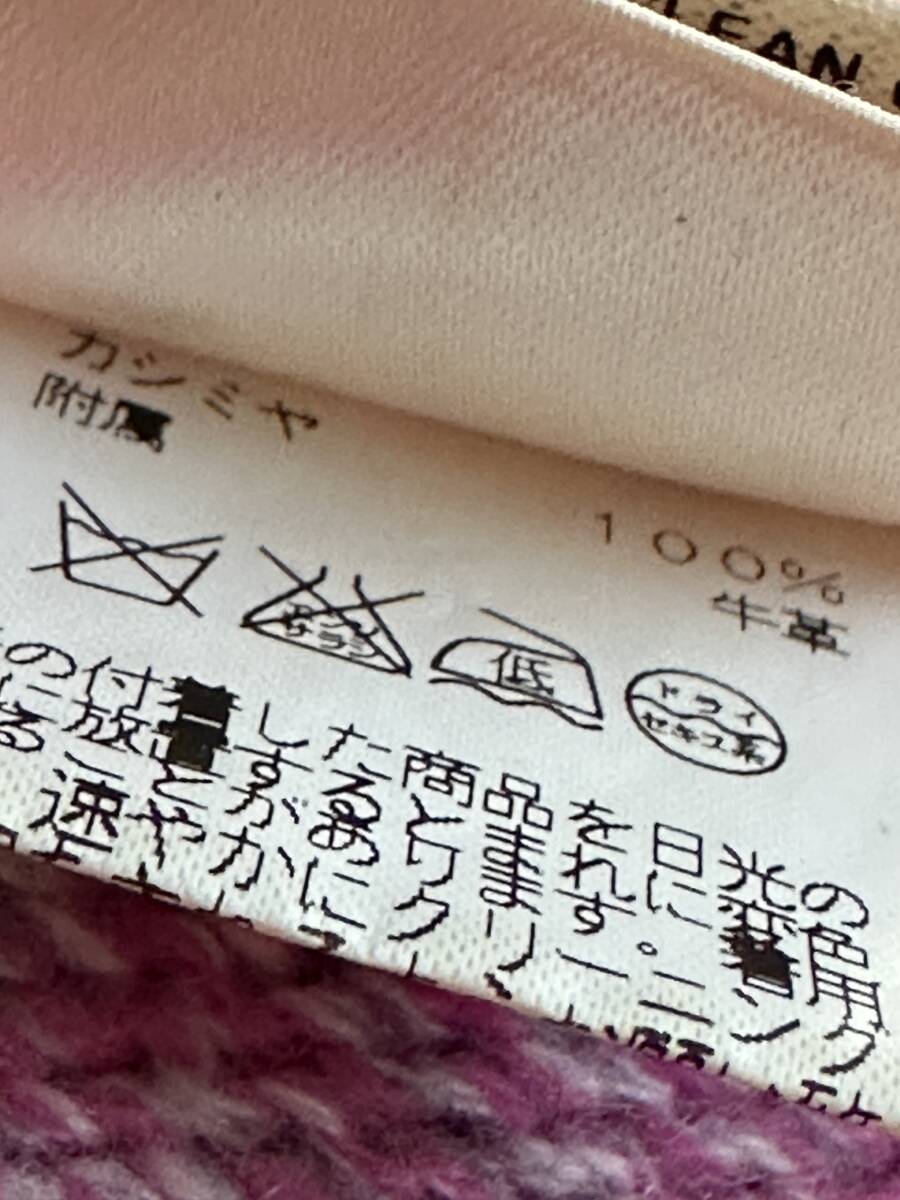 LEAN
カシミヤ 100%
附属 牛革
エンソ
サラシ
低
ドライ
セキユ系
の付着した商品を日光の
に放置するとまれに変色
ることがあります。着用
速やかにクリーニング